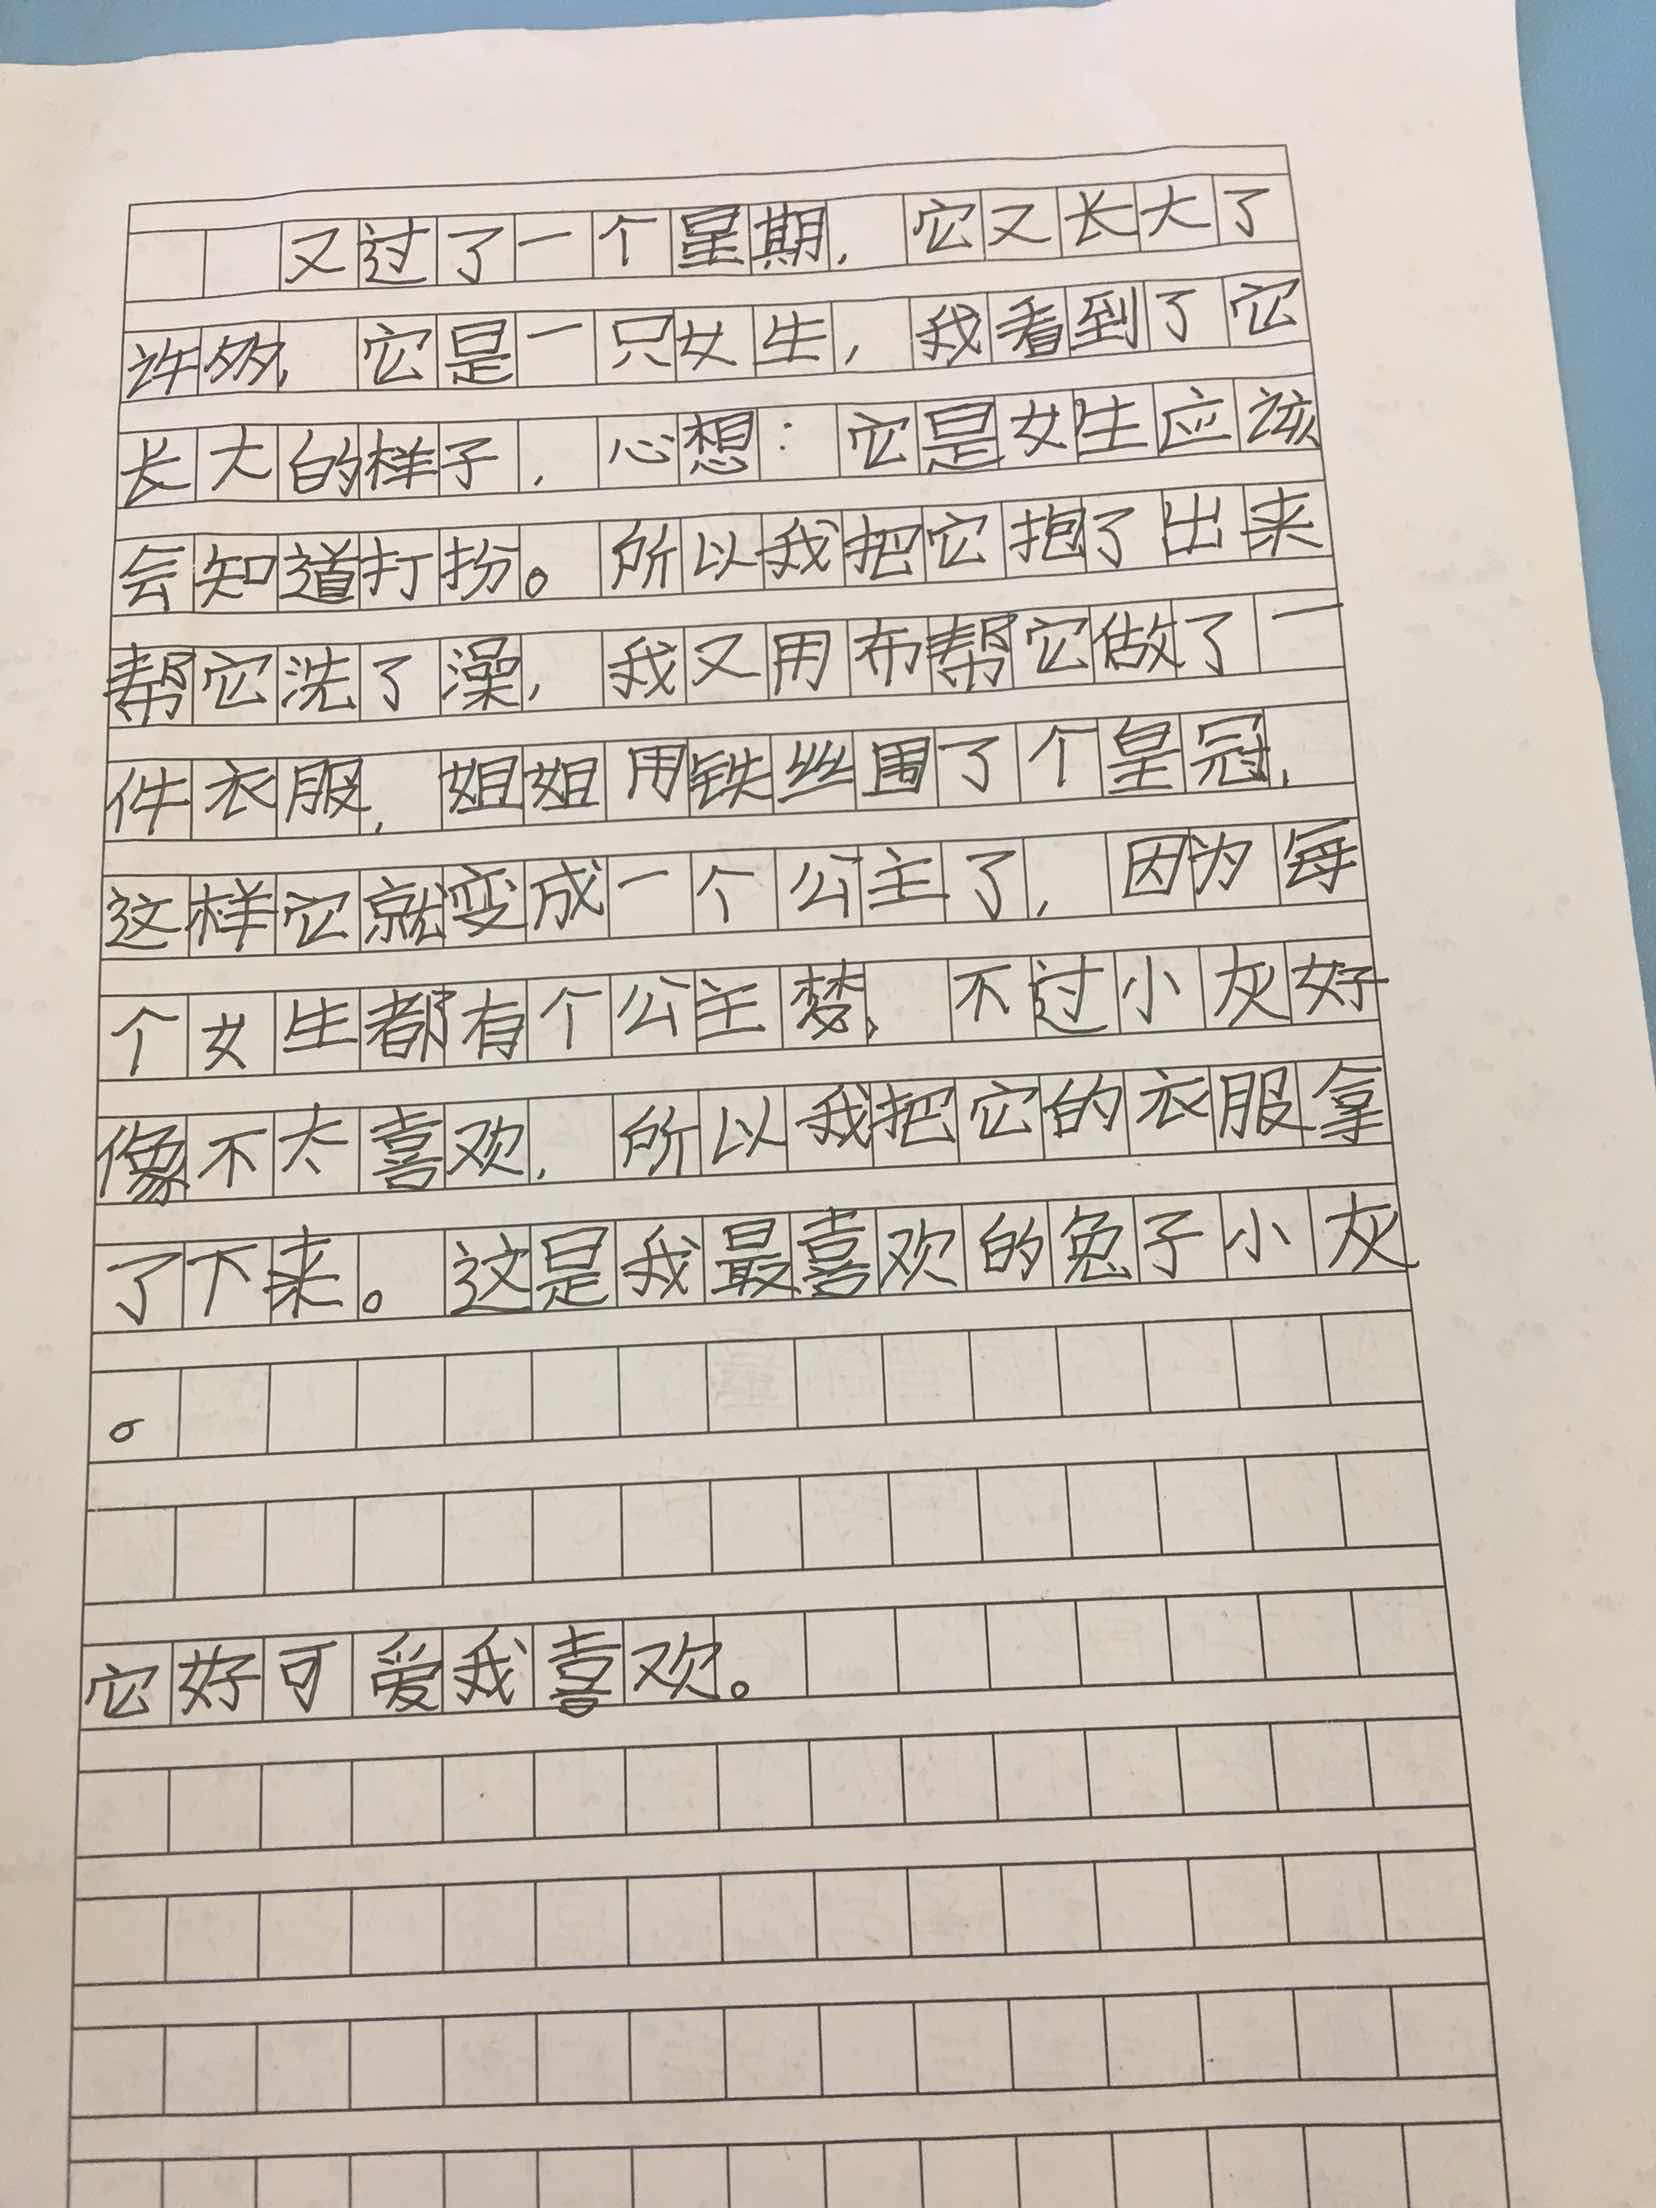 又过了一个星期，它又长大了
许多，它是一只女生，我看到了它
长大的样子，心想：它是女生应该
会知道打扮。所以我把它抱了出来
帮它洗了澡，我又用布帮它做了一
件衣服，姐姐用铁丝围了个皇冠，
这样它就变成一个公主了，因为每
个女生都有个公主梦，不过小灰好
像不太喜欢，所以我把它的衣服拿
了下来。这是我最喜欢的兔子小灰
。
它好可爱我喜欢。